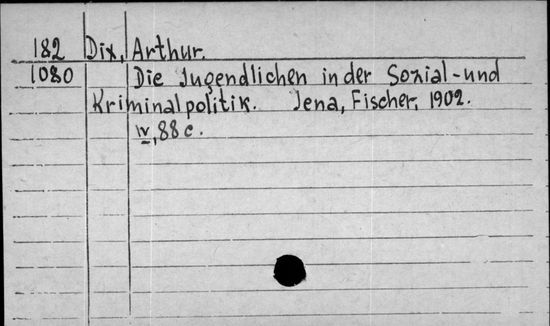 182 Dix, Arthur.
1080 Die Jugendlichen in der Sozial-und
Kriminalpolitik. Jena, Fischer, 1902.
IV, 88 c.